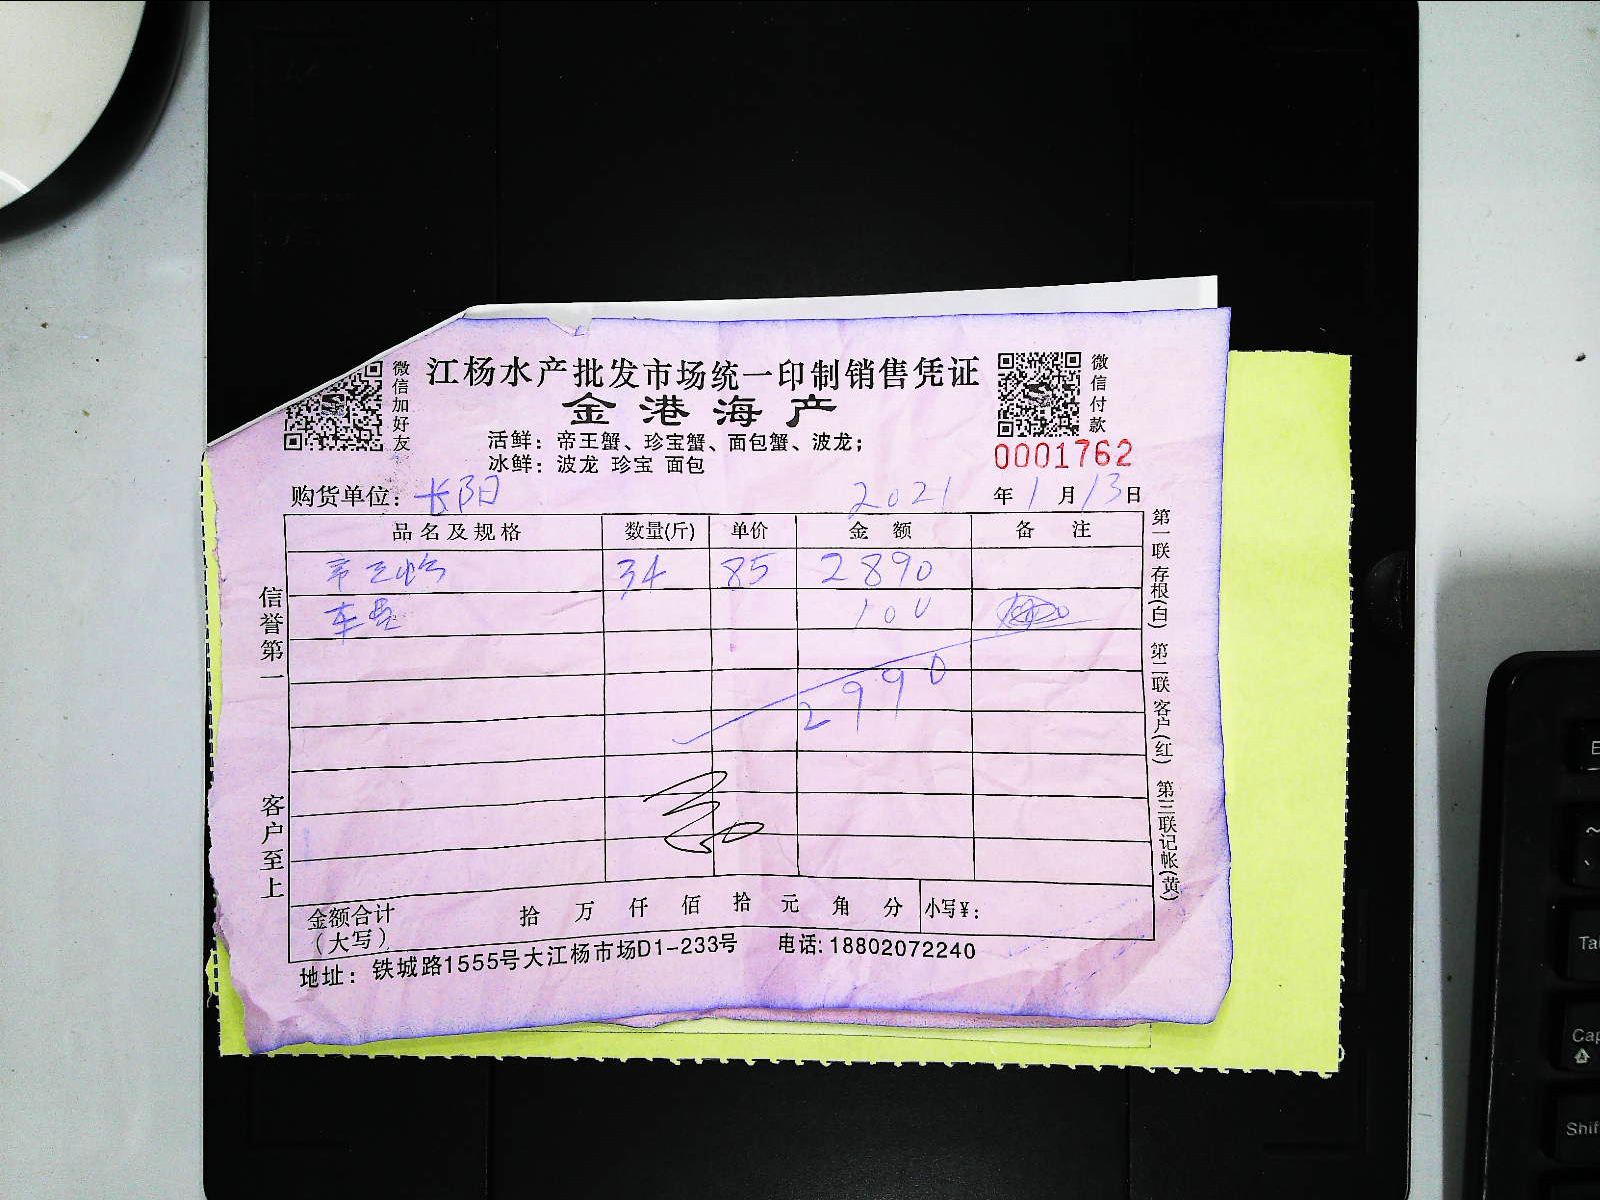 江杨水产批发市场统一印制销售凭证
金港海产
微信加好友
微信付款
活鲜：帝王蟹、珍宝蟹、面包蟹、波龙；
冰鲜：波龙 珍宝 面包
0001762
购货单位：长阳 2021 年 1 月 13 日
品名及规格 数量(斤) 单价 金额 备注
帝王蟹 34 85 2890
车费 100
2990
金额合计（大写） 拾 万 仟 佰 拾 元 角 分 小写￥：
地址：铁城路1555号大江杨市场D1-233号 电话: 18802072240
信誉第一
客户至上
第一联 存根(白) 第二联 客户(红) 第三联 记帐(黄)
Cap
Shif
Ta